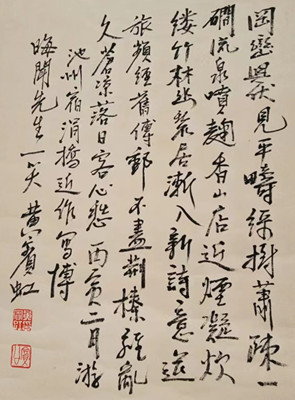 岡巒興伏見平疇綠樹蕭疎一
磵流泉噴麴香山店近煙凝炊
縷竹林幽居漸入新詩意遊
旅頻經舊傳郵不盡荊榛經亂
久蒼涼落日客心愁丙寅二月游
池州宿涓橋近作寫博
晦聞先生一笑黃賓虹